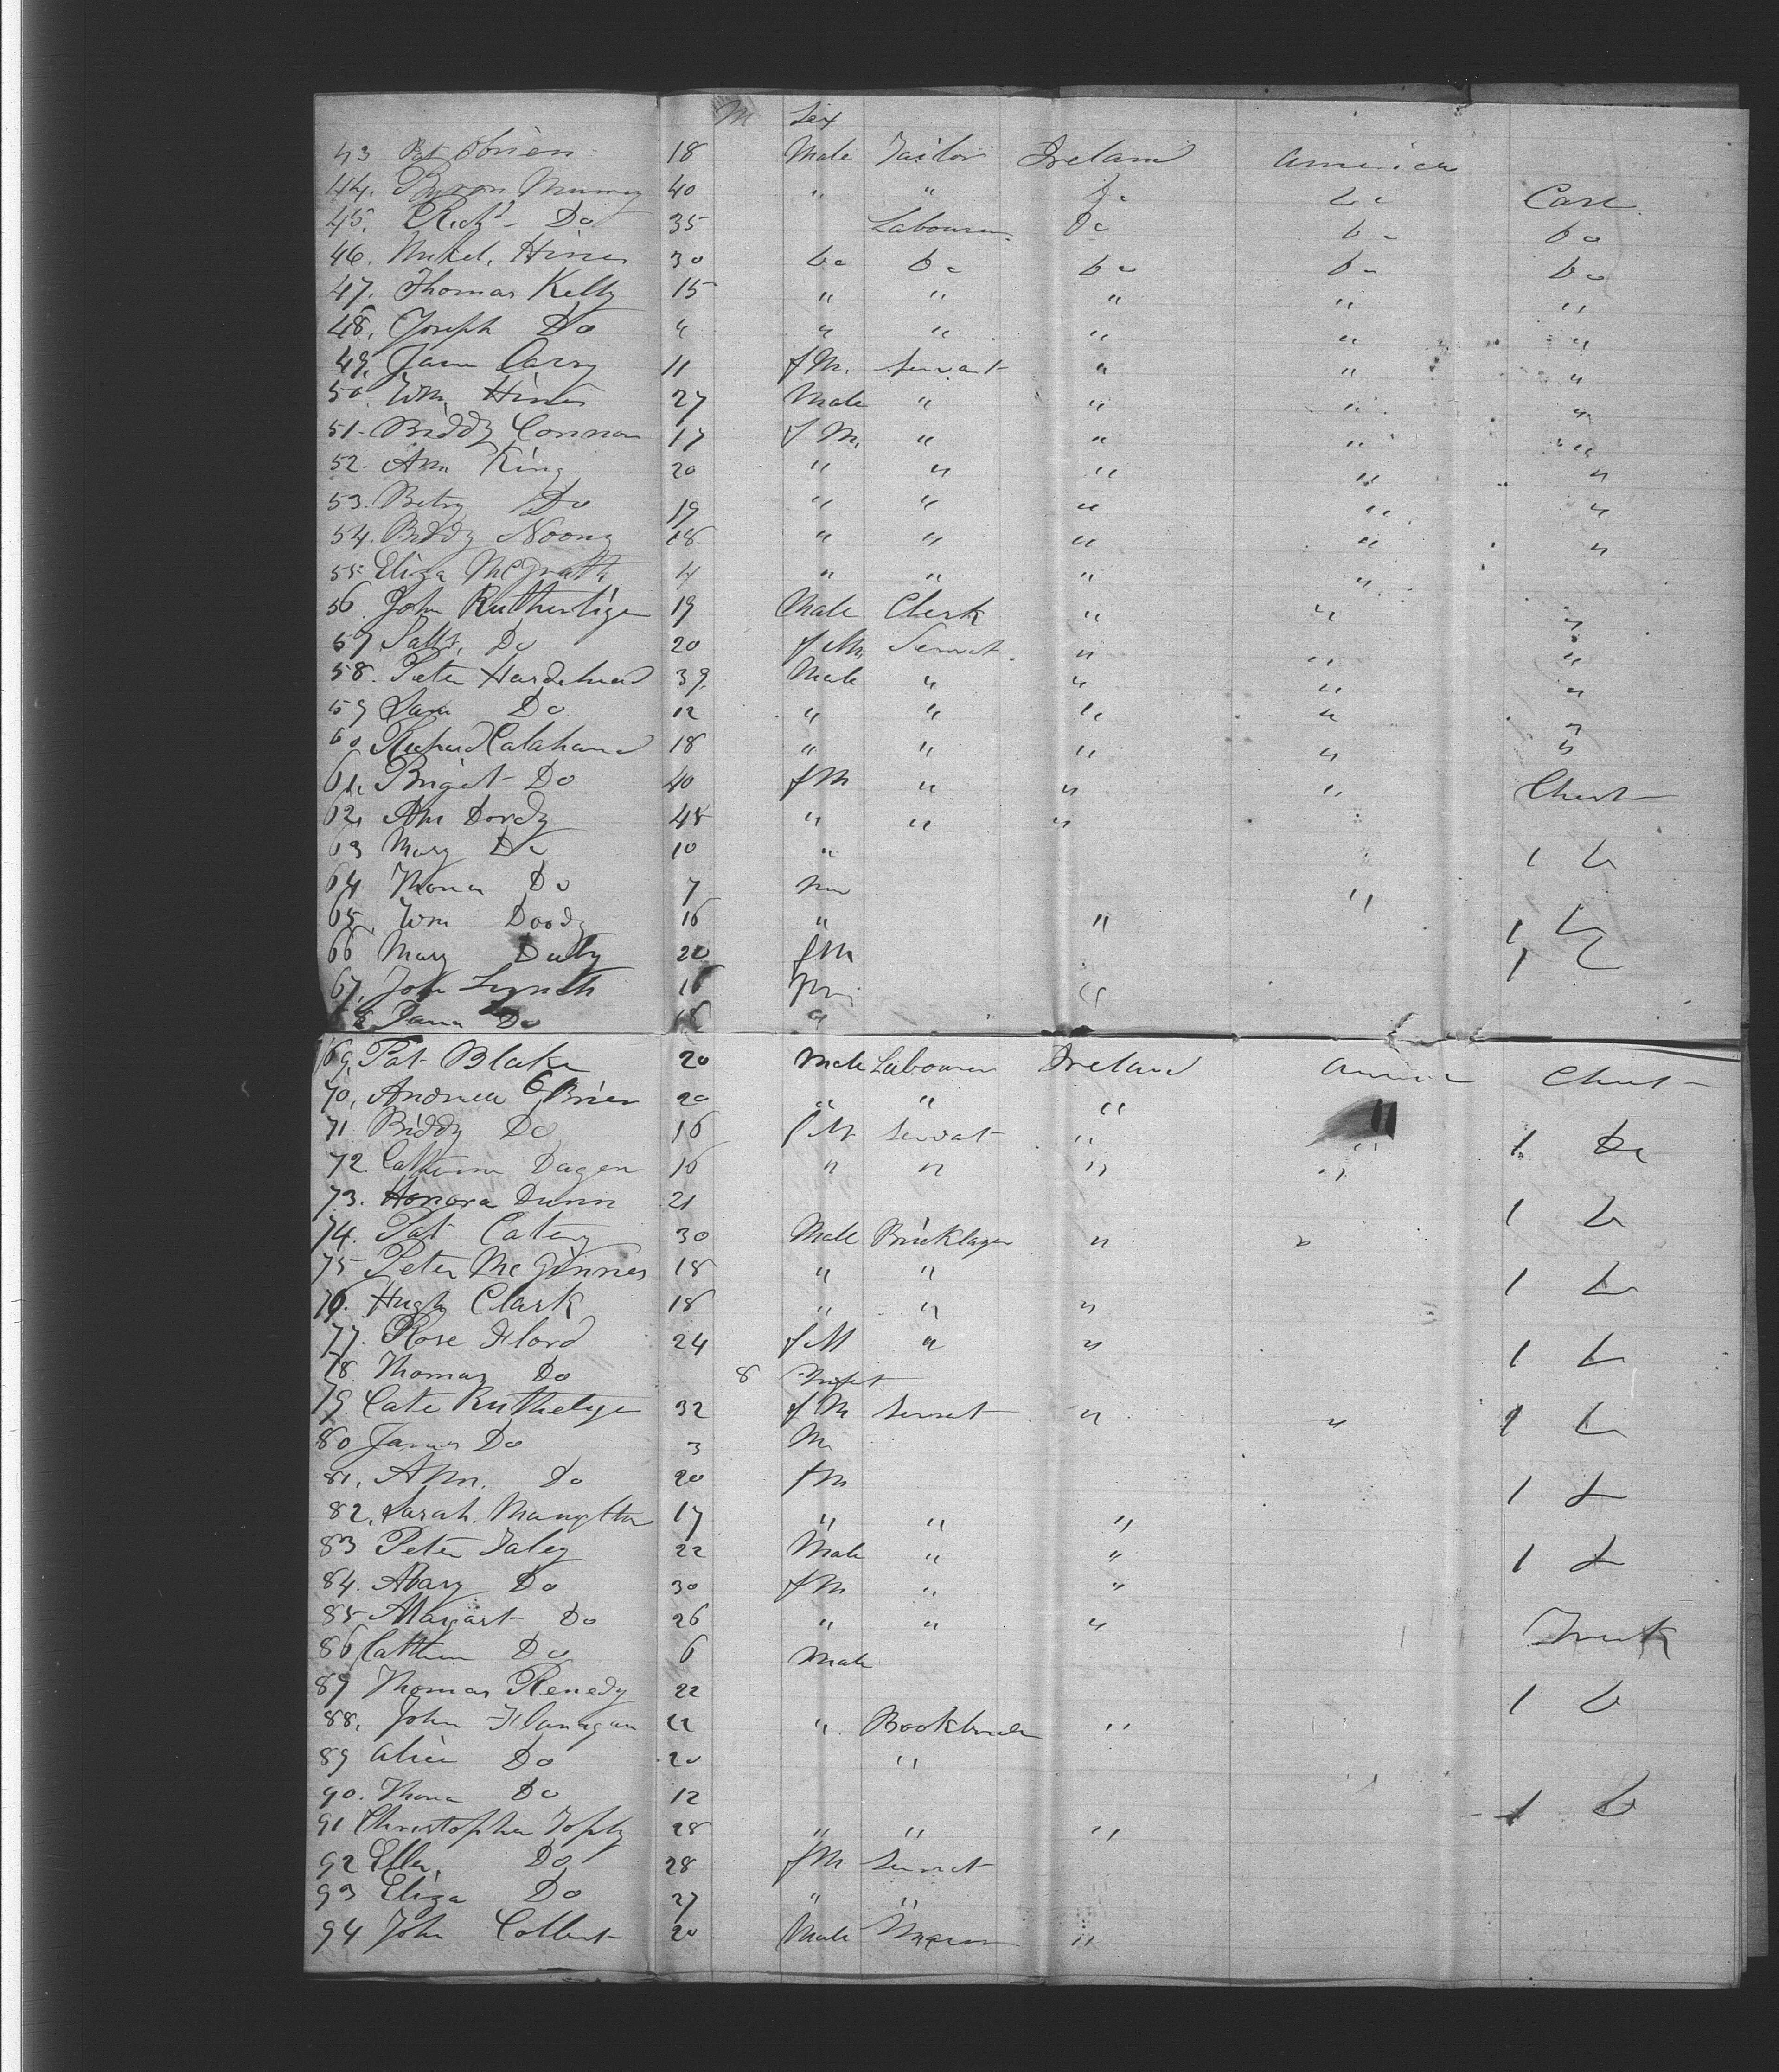 M Sex
43 Pat Obrien 18 Male Tailor Ireland America
44. Byron Murray 40 " " Do Do Case
45. Richd Do 35 Labourer Do Do Do
46. Mikel. Hines 30 Do Do Do Do Do
47. Thomas Kelly 15 " " " " "
48. Joseph Do " " " " "
49. Jane Carry 11 f M. Servant " " "
50. Wm Hines 27 Male " " " "
51. Biddy Connor 17 f M. " " " "
52. Ann King 20 " " " " "
53. Betsy Do 19 " " " " "
54. Biddy Noony 18 " " " " "
55 Eliza McGrath " " " "
56. John Rutherlige 19 Male Clerk " " "
57 Do 20 f M Servat " " "
58. Peter 39 Male " " " "
59 Do 12 " " " " "
60 Richard Calahand 18 " " " " "
61. Briget Do 40 f M " " " Chest
62. An Dordy 48 " " "
63 Mary Do 10 " 1 Do
64 Thomas Do 7 "
65. Wm Doody 16 " " 1 Do
66 Mary 20 f M 1
67. John Lynch 16 "
68 Do 18 "
69. Pat Blake 20 Male Labourer Ireland Chest
70. Andrew OBrien 20 " " "
71 Biddy Do 16 f M Servat " " 1 Do
72. Catherine Dagen 16 " " " "
73. Honora Dunn 21 1 Do
74. Pat 30 Male Bricklayer " "
75 Peter McGinnes 18 " " 1 Do
76. Hugh Clark 18 " " "
77. Rose Flord 24 f M " " 1 Do
78. Thomas Do 8 Infet
79. Cate Ruthelige 32 f M Servat " " 1 Do
80 James Do 3 M
81. Ann. Do 20 f M 1 Do
82. Sarah. 17 " " "
83 Peter Faley 22 Male " " 1 Do
84. Mary Do 30 f M " "
85 Margart Do 26 " " " Trunk
86 Do 6 Male
87 Thomas Kenedy 22 1 Do
88. John Flanigan 22 " "
89 Alice Do 20 "
90. Do 12 1 Do
91 Christopher 28 " " "
92 Ellen. Do 28 f M Servat
93 Eliza Do 27 " "
94 John 20 Male Mason "